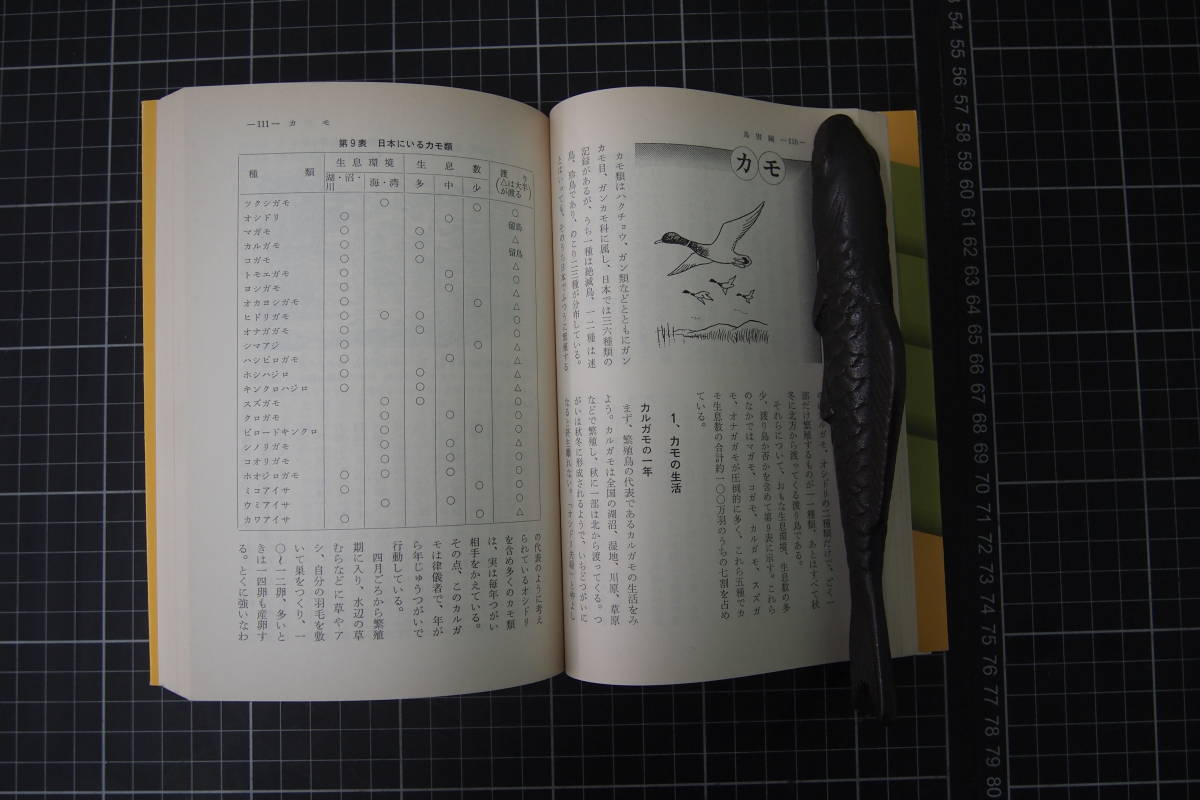 鳥獣編 —110—
カモ
カモ類はハクチョウ、ガン類などとともにガン
カモ目、ガンカモ科に属し、日本では三六種類の
記録があるが、うち一種は絶滅鳥、一二種は迷
鳥、珍鳥であり、のこり二三種が分布している。
とはいっても、そのうち日本でふつうに繁殖する
オシドリの二種類だけで、ごく一
部だけ繁殖するものが一種類、あとはすべて秋
冬に北方から渡ってくる渡り鳥である。
それらについて、おもな生息環境、生息数の多
少、渡り鳥か否かを含めて第9表に示す。これら
のなかではマガモ、コガモ、カルガモ、スズガ
モ、オナガガモが圧倒的に多く、これら五種でカ
モ生息数の合計約一〇〇万羽のうちの七割を占め
ている。
1、カモの生活
カルガモの一年
まず、繁殖鳥の代表であるカルガモの生活をみ
よう。カルガモは全国の湖沼、湿地、川原、草原
などで繁殖し、秋に一部は北から渡ってくる。つ
がいは秋冬に形成されるようで、いちどつがいに
なると終生離れない。「オシドリ夫婦」と仲よし
—111— カ モ
第9表 日本にいるカモ類
種 類 生息環境 生息数 渡り(△は大半が渡る)
湖・沼・川 海・湾 多 中 少
ツクシガモ ○ ○ ○
オシドリ ○ ○ 留鳥
マガモ ○ ○ △
カルガモ ○ ○ 留鳥
コガモ ○ ○ △
トモエガモ ○ ○ ○
ヨシガモ ○ ○ △
オカヨシガモ ○ ○ △
ヒドリガモ ○ ○ ○ ○
オナガガモ ○ ○ ○
シマアジ ○ ○ △
ハシビロガモ ○ ○ △
ホシハジロ ○ ○ △
キンクロハジロ ○ ○ △
スズガモ ○ ○ △
クロガモ ○ ○ ○
ビロードキンクロ ○ ○ ○
シノリガモ ○ ○ △
コオリガモ ○ ○ ○
ホオジロガモ ○ ○ ○ ○
ミコアイサ ○ ○ △
ウミアイサ ○ ○ ○
カワアイサ ○ ○ △
の代表のように考え
られているオシドリ
を含め多くのカモ類
は、実は毎年つがい
相手をかえている。
その点、このカルガ
モは律儀者で、年が
ら年じゅうつがいで
行動している。
四月ごろから繁殖
期に入り、水辺の草
むらなどに草やア
シ、自分の羽毛を敷
いて巣をつくり、一
〇〜一二卵、多いと
きは一四卵も産卵す
る。とくに強いなわ
54
55
56
57
58
59
60
61
62
63
64
65
66
67
68
69
70
71
72
73
74
75
76
77
78
79
80